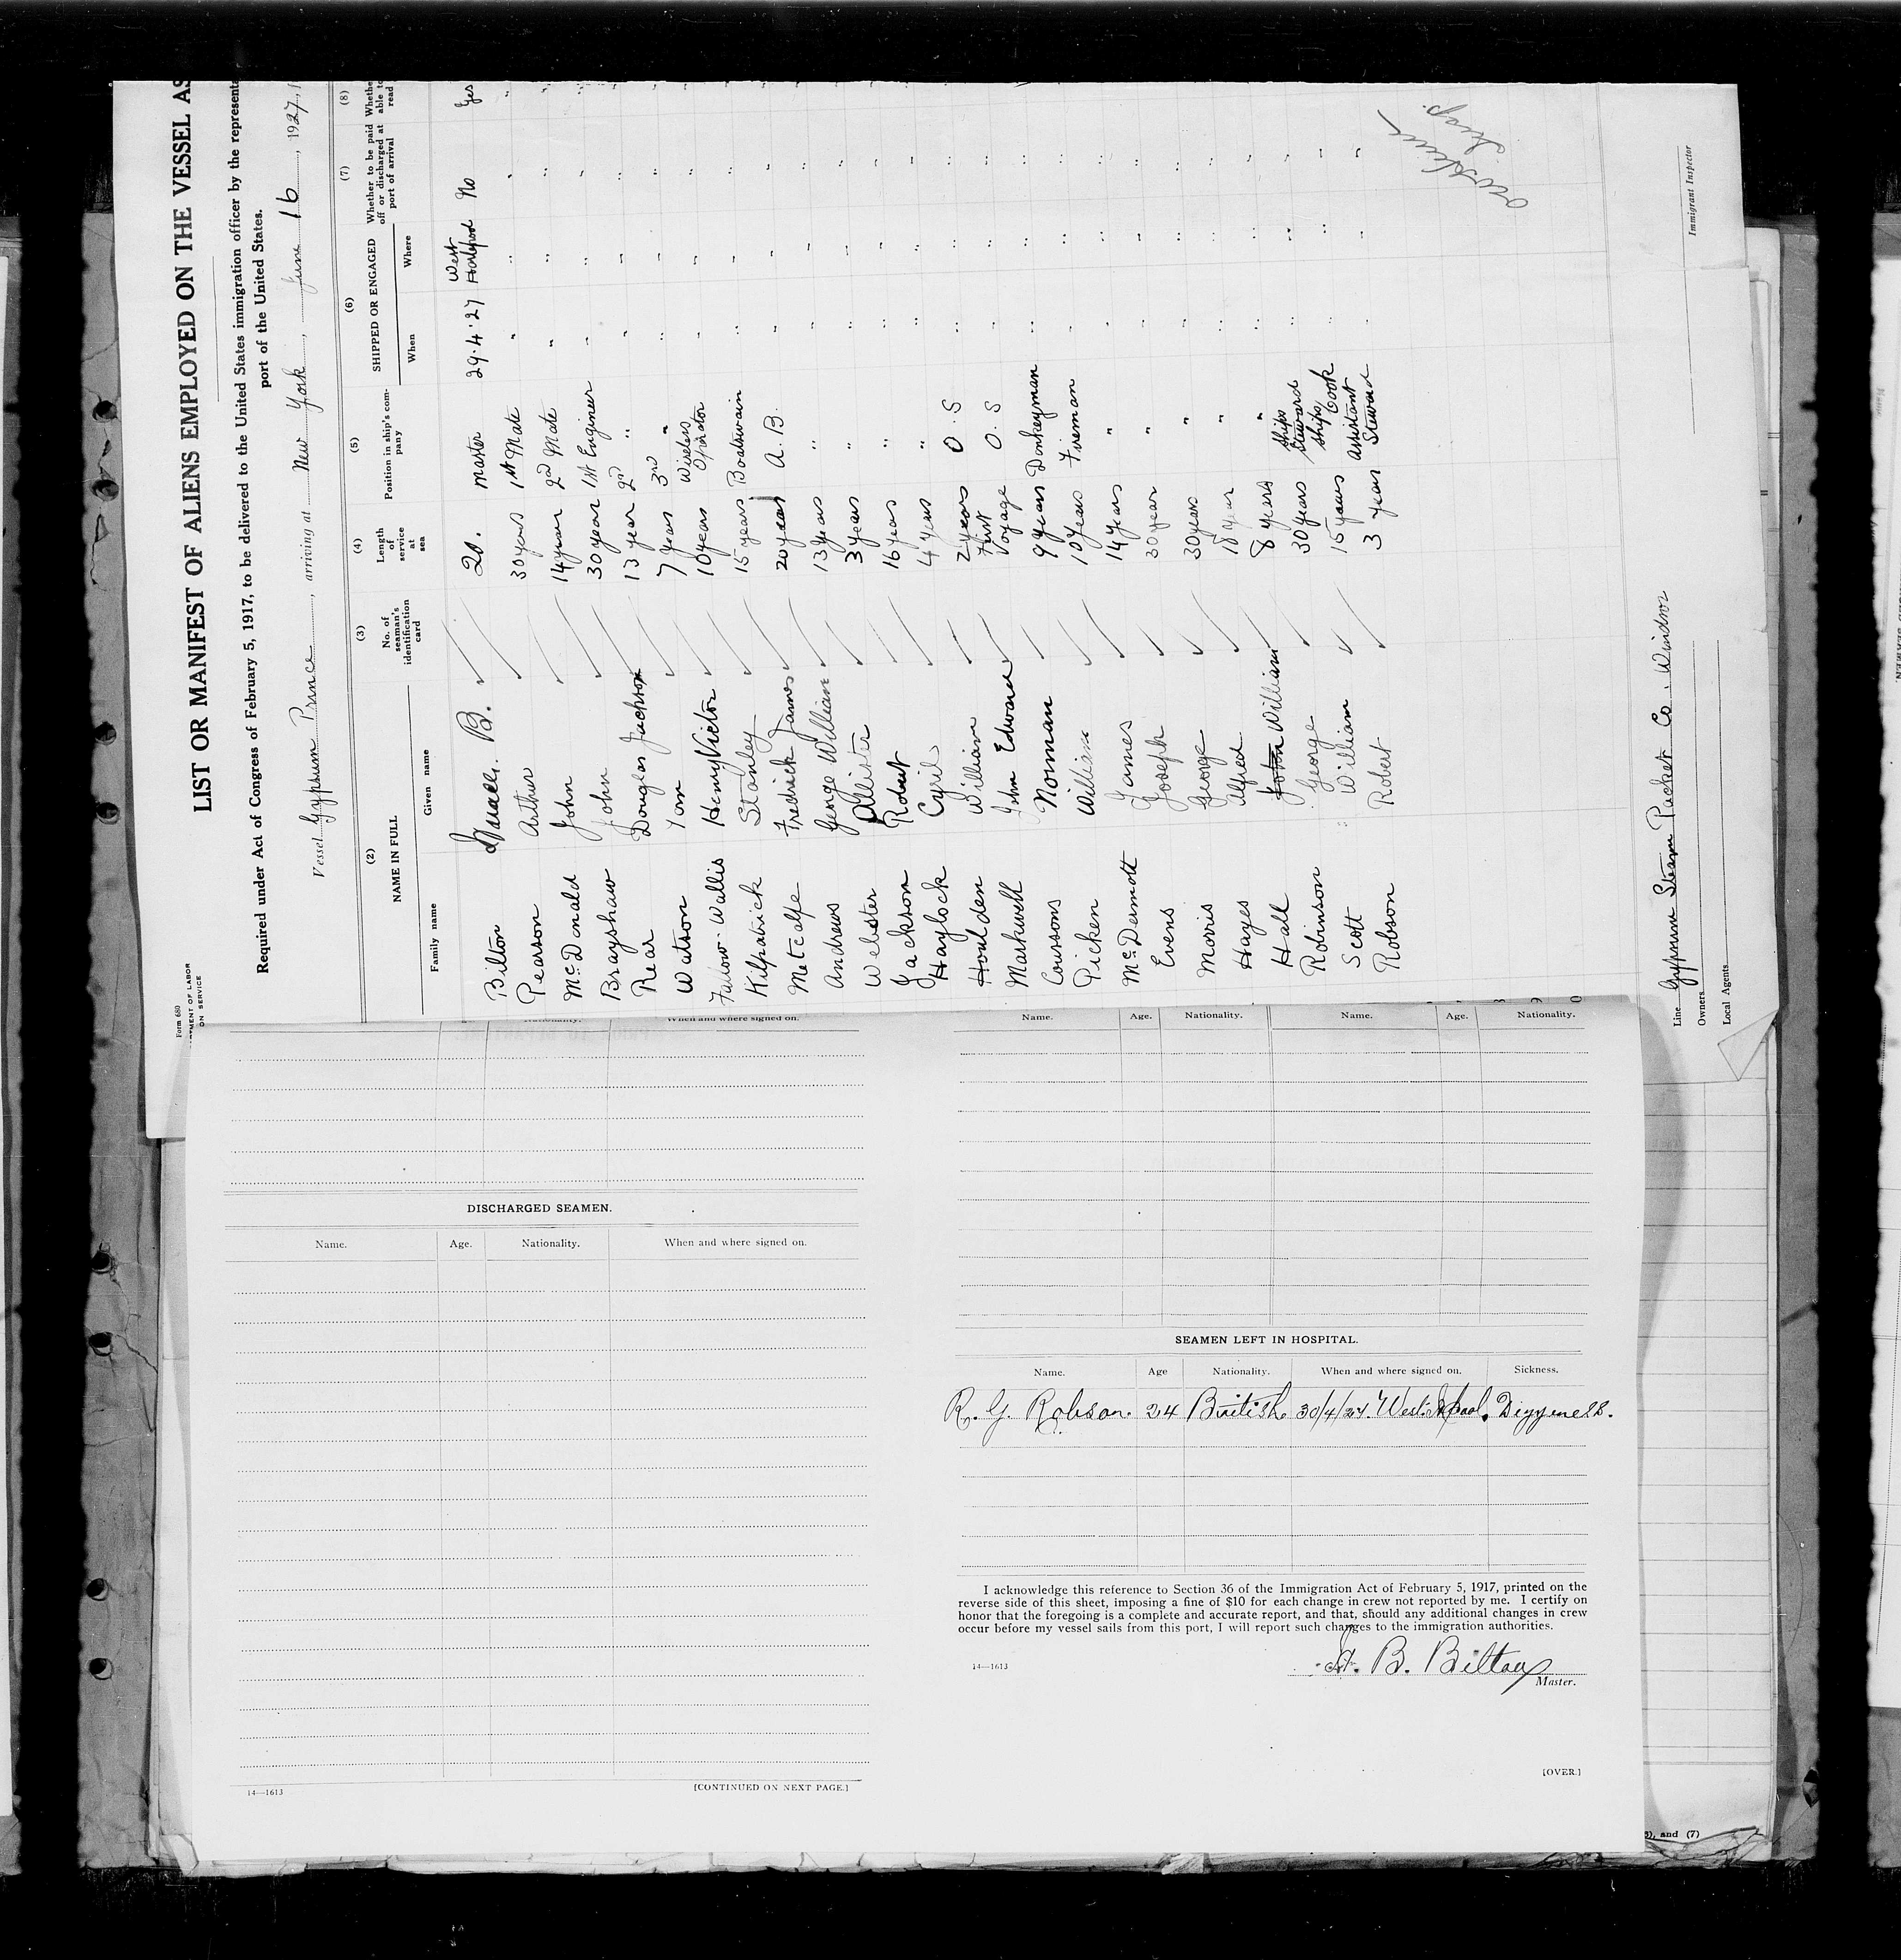 Form 680
LIST OR MANIFEST OF ALIENS EMPLOYED ON THE VESSEL AS
Required under Act of Congress of February 5, 1917, to be delivered to the United States immigration officer by the representa
port of the United States.
Vessel Gypsum Prince, arriving at New York, June 16, 1927,
(2) (3) (4) (5) (6) (7) (8)
NAME IN FULL No. of seaman's identification card Length of service at sea Position in ship's company SHIPPED OR ENGAGED Whether to be paid off or discharged at port of arrival Whether able to read
Family name Given name When Where
Bilton B. 20. master 29.4.27 West Hartlepool No Yes
Pearson Arthur 30 years 1st Mate " " " "
McDonald John 14 year 2nd Mate " " " "
Brayshaw John 30 year 1st Engineer " " " "
Rear Douglas Jackson 13 year 2nd " " " " "
Watson Tom 7 years 3rd " " " " "
Wallis Henry Victor 10 years Wireless Operator " " " "
Kilpatrick Stanley 15 years Boatswain " " " "
Metcalfe Fredrick James 20 years A.B. " " " "
Andrews George William 13 years " " " " "
Webster Allister 3 years " " " " "
Jackson Robert 16 years " " " " "
Haylock Cyril 4 years " " " " "
Houlden William 2 years O.S " " " "
Markwell John Edward First Voyage O.S " " " "
Coussons Norman 9 years Donkeyman " " " "
Picken William 10 years Fireman " " " "
McDermott James 14 years " " " " "
Evens Joseph 30 year " " " " "
Morris George 30 years " " " " "
Hayes Alfred 18 year " " " " "
Hall John William 8 years " " " " "
Robinson George 30 years Ships Steward " " " "
Scott William 15 years Ships Cook " " " "
Robson Robert 3 years Assistant Steward " " " "
Line Gypsum Steam Packet Co. Windsor
Owners
Local Agents
Immigrant Inspector
Nationality. When and where signed on.
DISCHARGED SEAMEN.
Name. Age. Nationality. When and where signed on.
14—1613 [CONTINUED ON NEXT PAGE.]
Name. Age. Nationality. Name. Age. Nationality.
SEAMEN LEFT IN HOSPITAL.
Name. Age Nationality. When and where signed on. Sickness.
R. G. Robson. 24 British 30/4/27. West H'pool. Dizzyness.
I acknowledge this reference to Section 36 of the Immigration Act of February 5, 1917, printed on the
reverse side of this sheet, imposing a fine of $10 for each change in crew not reported by me. I certify on
honor that the foregoing is a complete and accurate report, and that, should any additional changes in crew
occur before my vessel sails from this port, I will report such changes to the immigration authorities.
14—1613 B. Bilton
Master.
[OVER.]
and (7)